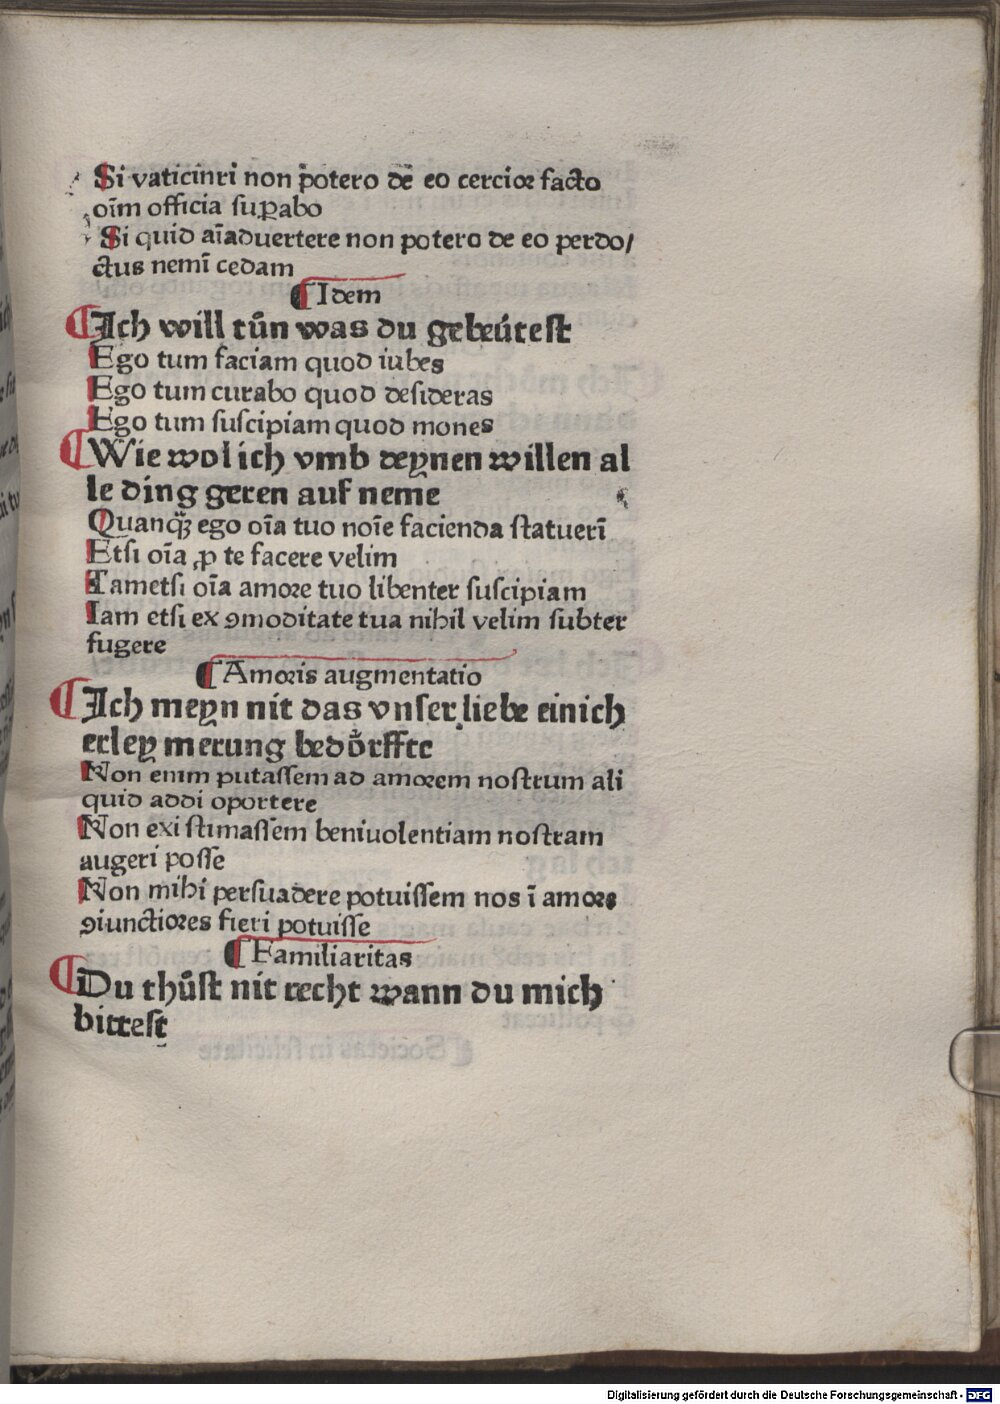 Si vaticinri non p̄otero dē eo cercioꝛ facto
oīm officia suꝑabo
Si quid aīaduertere non potero de eo perdo/
ctus nemī cedam
¶ Idem
¶ Ich will tůn was du gebeütest
Ego tum faciam quod iubes
Ego tum curabo quod desideras
Ego tum suscipiam quod mones
¶ Wie wol ich vmb deynen willen al
le ding geren auf neme
Quanqꝫ ego oīa tuo noīe facienda statuerī
Etsi oīa ꝓ te facere velim
Tametsi oīa amoꝛe tuo libenter suscipiam
Iam etsi ex ꝯmoditate tua nihil velim subter
fugere
¶ Amoꝛis augmentatio
¶ Ich meyn nit das vnser liebe einich
erley merung bedoͤrffte
Non enim putassem ad amoꝛem nostrum ali
quid addi oportere
Non existimassem beniuolentiam nostram
augeri posse
Non mihi persuadere potuissem nos ī amoꝛe
ꝯiunctioꝛes fieri potuisse
¶ Familiaritas
¶ Du thůst nit recht wann du mich
bittest
Digitalisierung gefördert durch die Deutsche Forschungsgemeinschaft - DFG